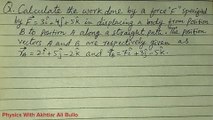 Q. Calculate the work done by a force "F" specified
by F = 3i + 4j + 5k in displacing a body from position
B to Position A along a straight Path. The position
vectors A and B are respectively given as
r_A = 2i + 5j - 2k and r_B = 7i + 3j - 5k.
Physics With Akhtar Ali Bullo